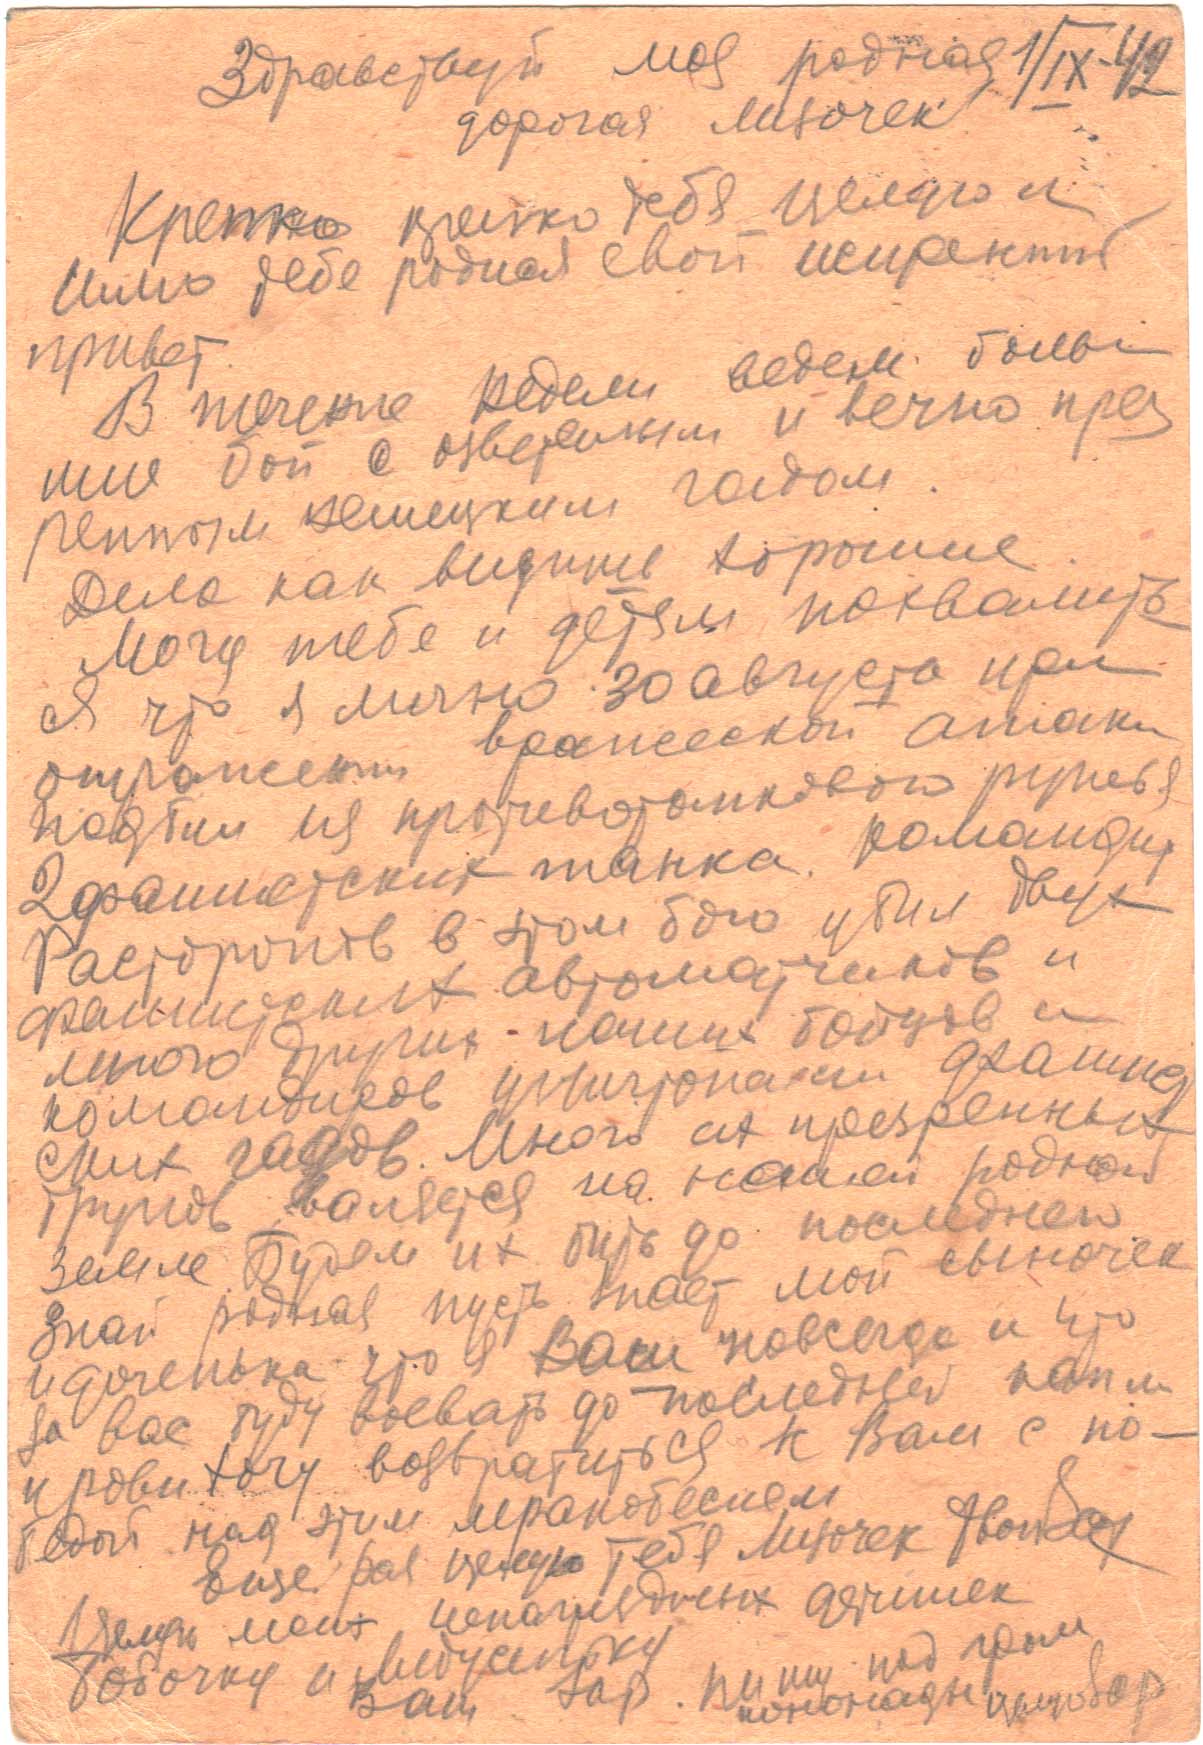 Здравствуй моя родная 1/IX-42
дорогая Лизочек
Крепко крепко тебя целую и
шлю тебе родная свой искренний
привет.
В течение недели ведем боль
шие бои с озверелым и вечно през
ренным немецким гадом.
Дела как видишь хорошие.
Могу тебе и детям похвалить
ся что я лично 30 августа при
отражении вражеской атаки
подбил из противотанкового ружья
2 фашистских танка. командир
Расторопов в этом бою убил двух
фашистских автоматчиков и
много других наших бойцов и
командиров уничтожали фашист
ских гадов. Много их презренных
трупов валяется на нашей родной
земле Будем их бить до последнего
Знай родная пусть знает мой сыночек
и доченька что я Ваш навсегда и что
за вас буду воевать до последней капли
крови хочу возвратиться к Вам с по-
бедой над этим мракобесием
Еще раз целую тебя Лизочек твой
Целую моих ненаглядных детишек
Бобочку и
Ваш пишу под гром
канонады целую